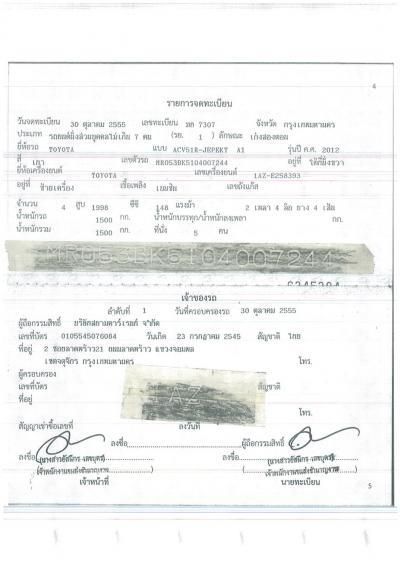 4
รายการจดทะเบียน
วันจดทะเบียน 30 ตุลาคม 2555 เลขทะเบียน 7307 จังหวัด กรุงเทพมหานคร
ประเภท รถยนต์นั่งส่วนบุคคลไม่เกิน 7 คน (รย. 1 ) ลักษณะ เก๋งสองตอน
ยี่ห้อรถ TOYOTA แบบ ACV51R-JEPEKT A1 รุ่นปี ค.ศ. 2012
สี เทา เลขตัวรถ MR053BK5104007244 อยู่ที่ ใต้ที่นั่งขวา
ยี่ห้อเครื่องยนต์ TOYOTA เลขเครื่องยนต์ 1AZ-E258393
อยู่ที่ ซ้ายเครื่อง เชื้อเพลิง เบนซิน เลขถังแก๊ส
จำนวน 4 สูบ 1998 ซีซี 148 แรงม้า 2 เพลา 4 ล้อ ยาง 4 เส้น
น้ำหนักรถ 1500 กก. น้ำหนักบรรทุก/น้ำหนักลงเพลา กก.
น้ำหนักรวม 1500 กก. ที่นั่ง 5 คน
MR053BK5104007244
เจ้าของรถ
ลำดับที่ 1 วันที่ครอบครองรถ 30 ตุลาคม 2555
ผู้ถือกรรมสิทธิ์ บริษัทสยามคาร์เรนท์ จำกัด
เลขที่บัตร 0105545076084 วันเกิด 23 กรกฎาคม 2545 สัญชาติ ไทย
ที่อยู่ 2 ซอยลาดพร้าว21 ถนนลาดพร้าว แขวงจอมพล
เขตจตุจักร กรุงเทพมหานคร โทร.
ผู้ครอบครอง
เลขที่บัตร สัญชาติ
ที่อยู่
โทร.
สัญญาเช่าซื้อเลขที่ ลงวันที่
ลงชื่อ ผู้ถือกรรมสิทธิ์
ลงชื่อ ลงชื่อ
เจ้าหน้าที่ นายทะเบียน
5